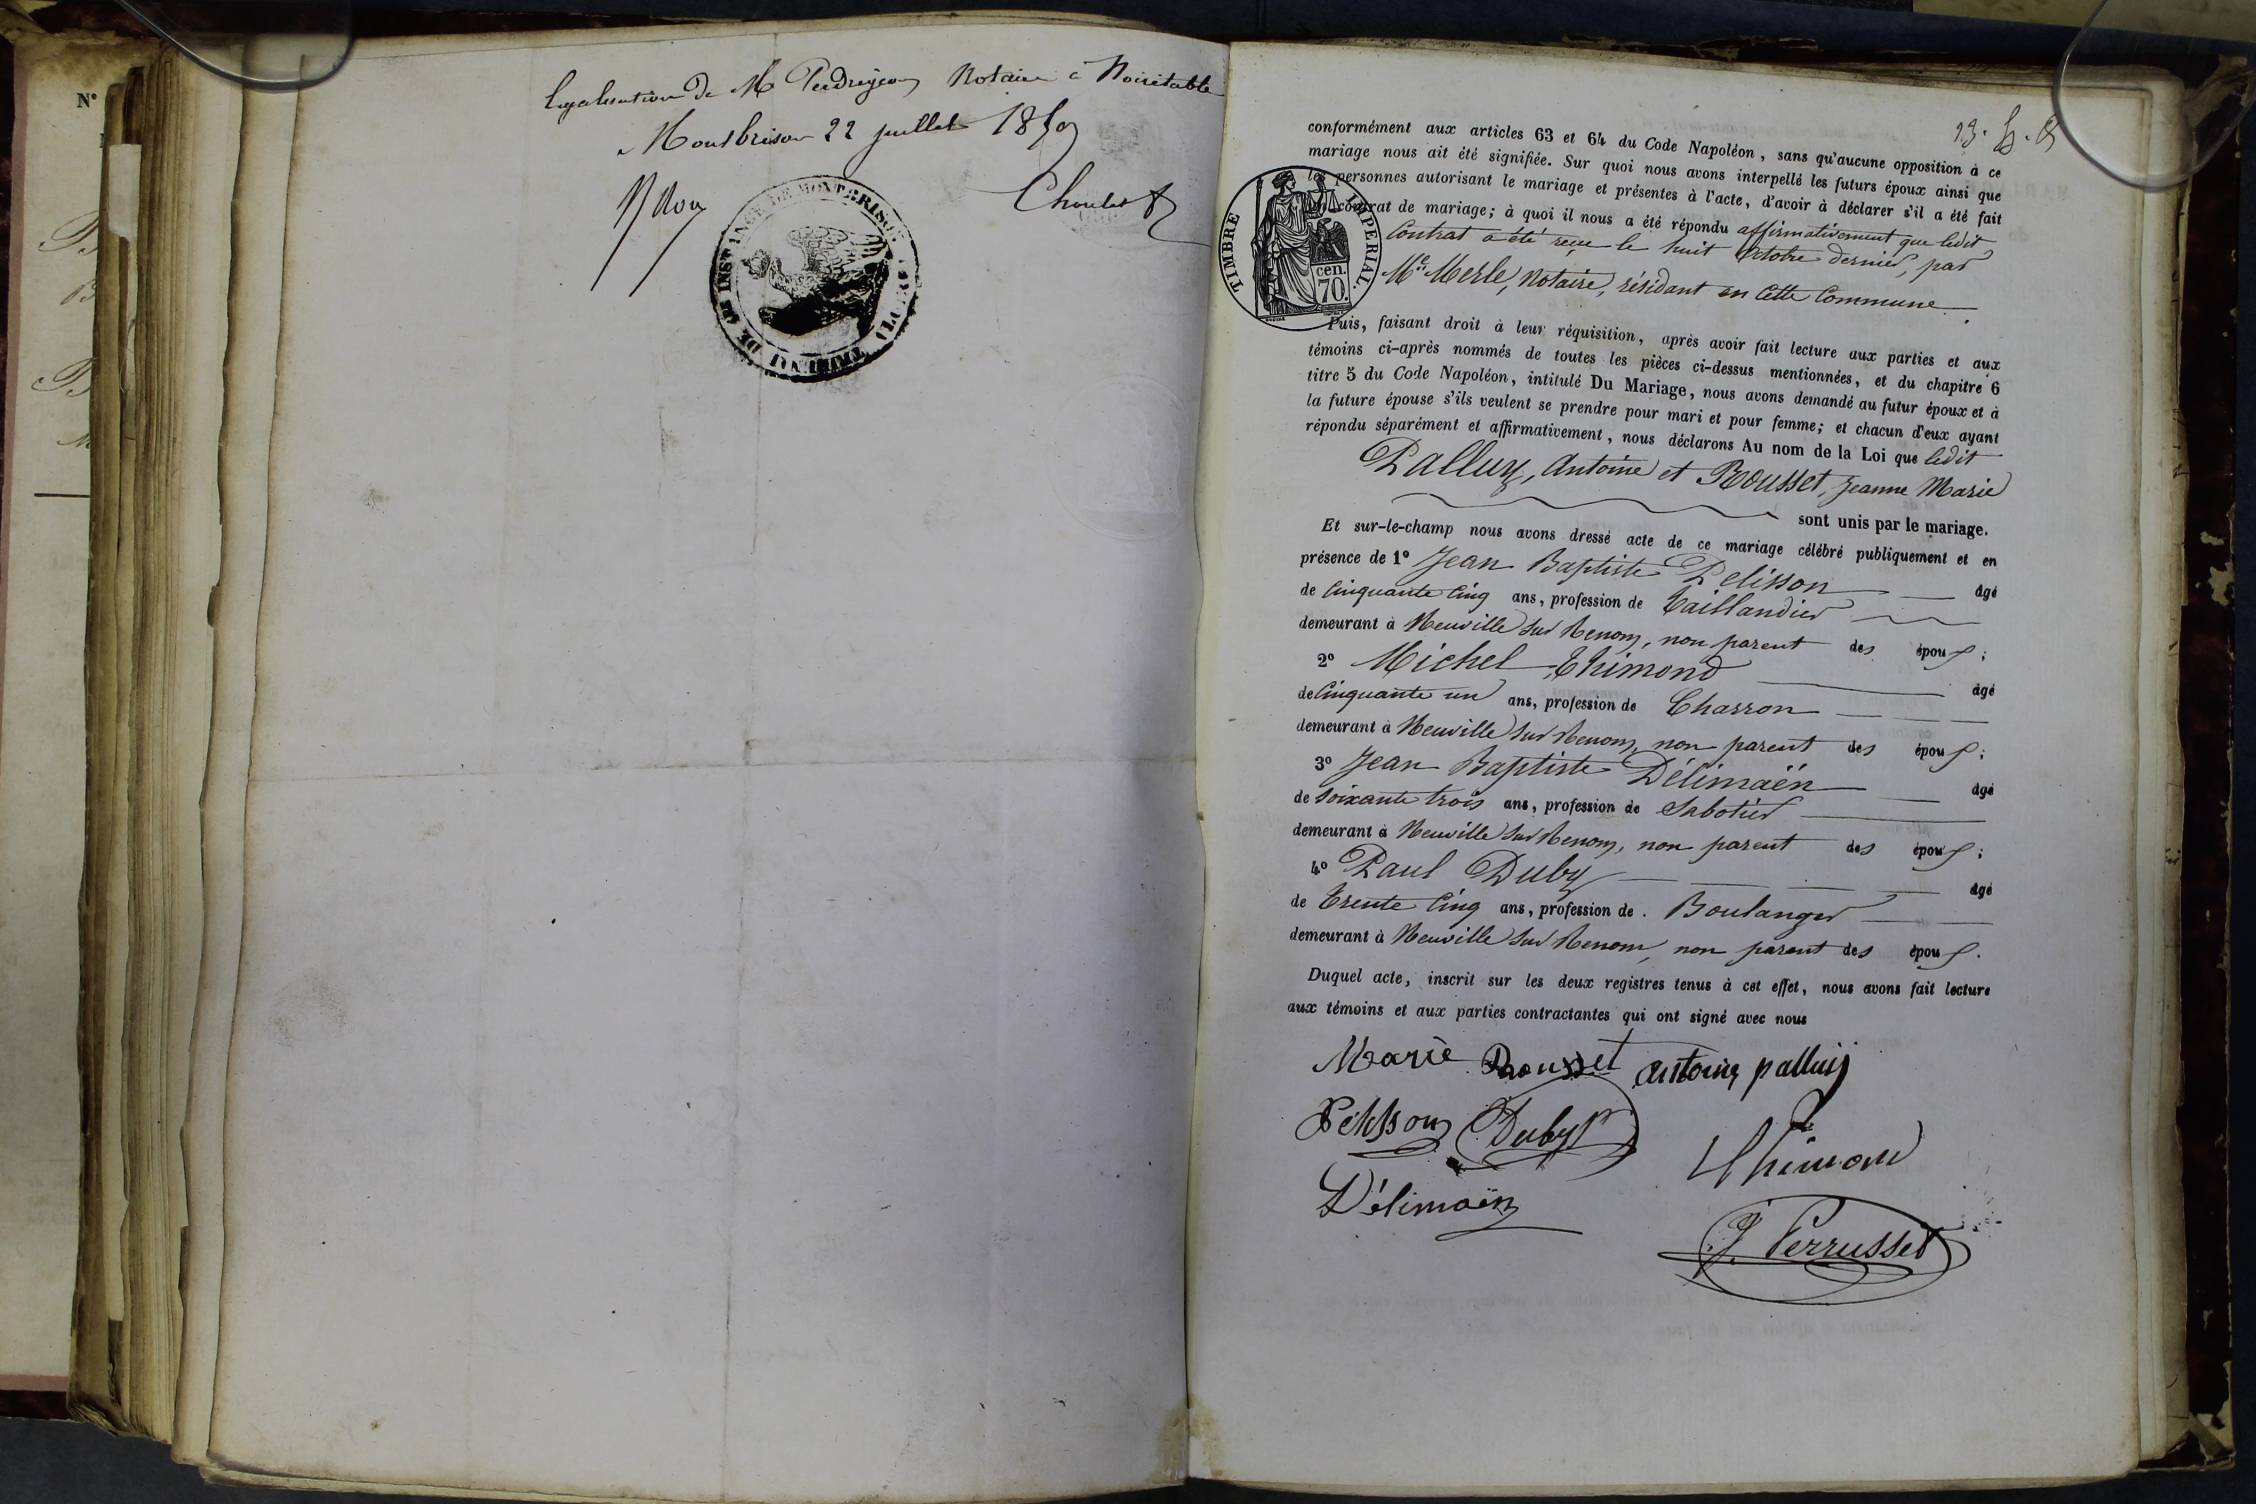 Legalisation de M Perdrigeon Notaire à Noirétable
Montbrison 22 juillet
TRIBUNAL DE 1ERE INSTANCE DE MONTBRISON
N°
conformément aux articles 63 et 64 du Code Napoléon, sans qu'aucune opposition à ce
mariage nous ait été signifiée. Sur quoi nous avons interpellé les futurs époux ainsi que
les personnes autorisant le mariage et présentes à l'acte, d'avoir à déclarer s'il a été fait
un contrat de mariage; à quoi il nous a été répondu affirmativement que ledit
Contrat a été reçu le huit Octobre dernier, par
Me Merle, Notaire, résidant en cette Commune.
TIMBRE IMPERIAL.
70 cen.
Puis, faisant droit à leur réquisition, après avoir fait lecture aux parties et aux
témoins ci-après nommés de toutes les pièces ci-dessus mentionnées, et du chapitre 6
titre 5 du Code Napoléon, intitulé Du Mariage, nous avons demandé au futur époux et à
la future épouse s'ils veulent se prendre pour mari et pour femme; et chacun d'eux ayant
répondu séparément et affirmativement, nous déclarons Au nom de la Loi que ledit
Palluy, Antoine et Rousset, Jeanne Marie
sont unis par le mariage.
Et sur-le-champ nous avons dressé acte de ce mariage célébré publiquement et en
présence de 1° Jean Baptiste Pelisson âgé
de Cinquante Cinq ans, profession de Taillandier
demeurant à Neuville sur Renom, non parent des époux;
2° Michel Thimond âgé
de Cinquante un ans, profession de Charron
demeurant à Neuville sur Renom, non parent des époux;
3° Jean Baptiste Délimaën âgé
de Soixante trois ans, profession de Sabotier
demeurant à Neuville sur Renom, non parent des époux;
4° Paul Duby âgé
de Trente Cinq ans, profession de . Boulanger
demeurant à Neuville sur Renom, non parent des époux.
Duquel acte, inscrit sur les deux registres tenus à cet effet, nous avons fait lecture
aux témoins et aux parties contractantes qui ont signé avec nous
Marie Rousset antoine palluij
Pelisson Duby
Thimond
Délimaën
J. Perrusset